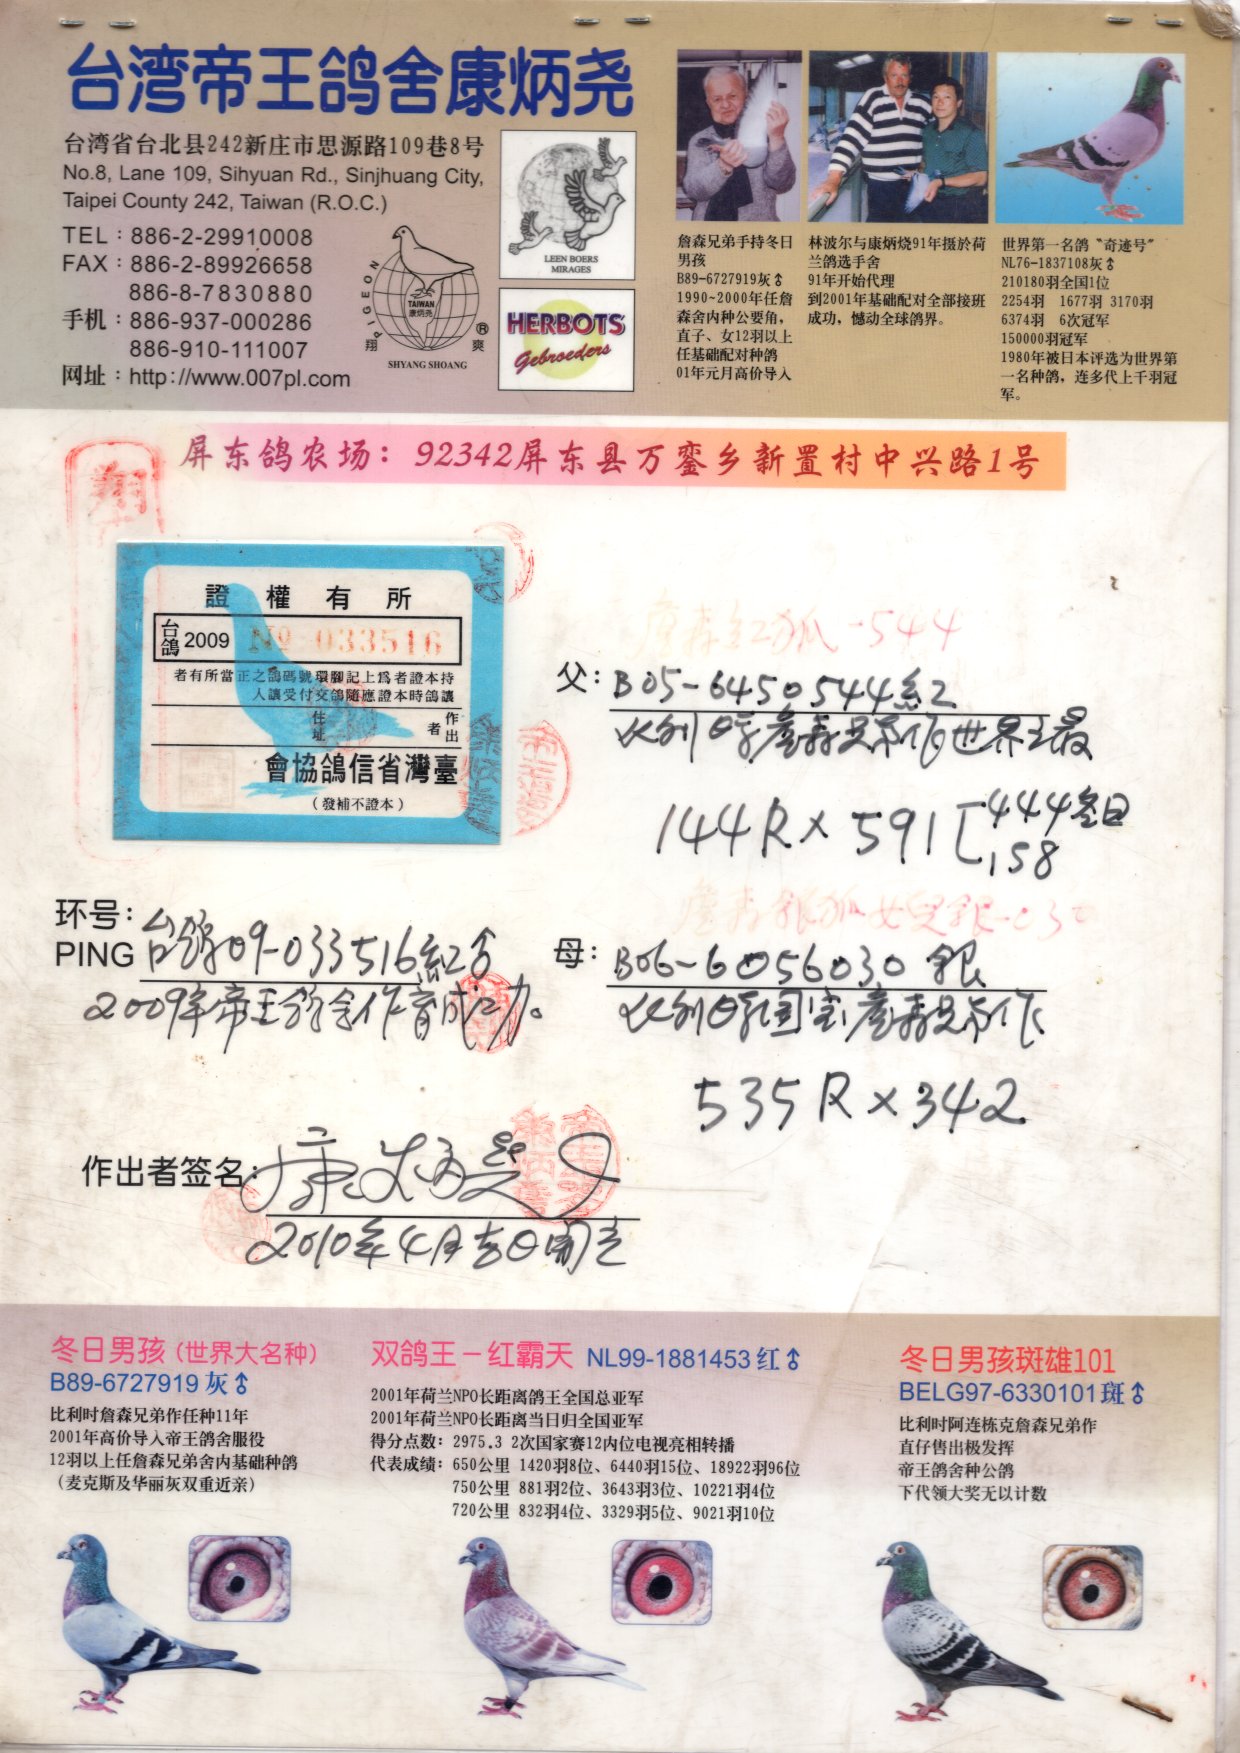 台湾帝王鸽舍康炳尧
台湾省台北县242新庄市思源路109巷8号
No.8, Lane 109, Sihyuan Rd., Sinjhuang City,
Taipei County 242, Taiwan (R.O.C.)
TEL：886-2-29910008
FAX：886-2-89926658
886-8-7830880
手机：886-937-000286
886-910-111007
网址：http://www.007pl.com
PIGEON
TAIWAN
康炳尧
翔 爽
®
SHYANG SHOANG
LEEN BOERS
MIRAGES
HERBOTS
Gebroeders
詹森兄弟手持冬日
男孩
B89-6727919灰♂
1990~2000年任詹
森舍内种公要角，
直子、女12羽以上
任基础配对种鸽
01年元月高价导入
林波尔与康炳烧91年摄於荷
兰鸽选手舍
91年开始代理
到2001年基础配对全部接班
成功，憾动全球鸽界。
世界第一名鸽〝奇迹号〞
NL76-1837108灰♂
210180羽全国1位
2254羽 1677羽 3170羽
6374羽 6次冠军
150000羽冠军
1980年被日本评选为世界第
一名种鸽，连多代上千羽冠
军。
屏东鸽农场：92342屏东县万銮乡新置村中兴路1号
翔
證權有所
台鴿 2009 No 033516
者有所當正之鴿碼號環腳記上爲者證本持
人讓受付交鴿隨應證本時鴿讓
住址
作出者
會協鴿信省灣臺
（發補不證本）
詹森红狐-544
父：B05-6450544红
比利时詹森兄弟作世界主最
144R×591[444冬日
158
詹森银狐女儿银-030
环号：
PING 台鸽09-033516红♂
2009年帝王鸽舍作育成功。
母：B06-6056030 银
比利时国宝詹森兄弟作
535R×342
作出者签名：康炳尧
2010年4月吉日开立
冬日男孩（世界大名种）
B89-6727919灰♂
比利时詹森兄弟作任种11年
2001年高价导入帝王鸽舍服役
12羽以上任詹森兄弟舍内基础种鸽
（麦克斯及华丽灰双重近亲）
双鸽王－红霸天 NL99-1881453红♂
2001年荷兰NPO长距离鸽王全国总亚军
2001年荷兰NPO长距离当日归全国亚军
得分点数：2975.3 2次国家赛12内位电视亮相转播
代表成绩：650公里 1420羽8位、6440羽15位、18922羽96位
750公里 881羽2位、3643羽3位、10221羽4位
720公里 832羽4位、3329羽5位、9021羽10位
冬日男孩斑雄101
BELG97-6330101斑♂
比利时阿连栋克詹森兄弟作
直仔售出极发挥
帝王鸽舍种公鸽
下代领大奖无以计数